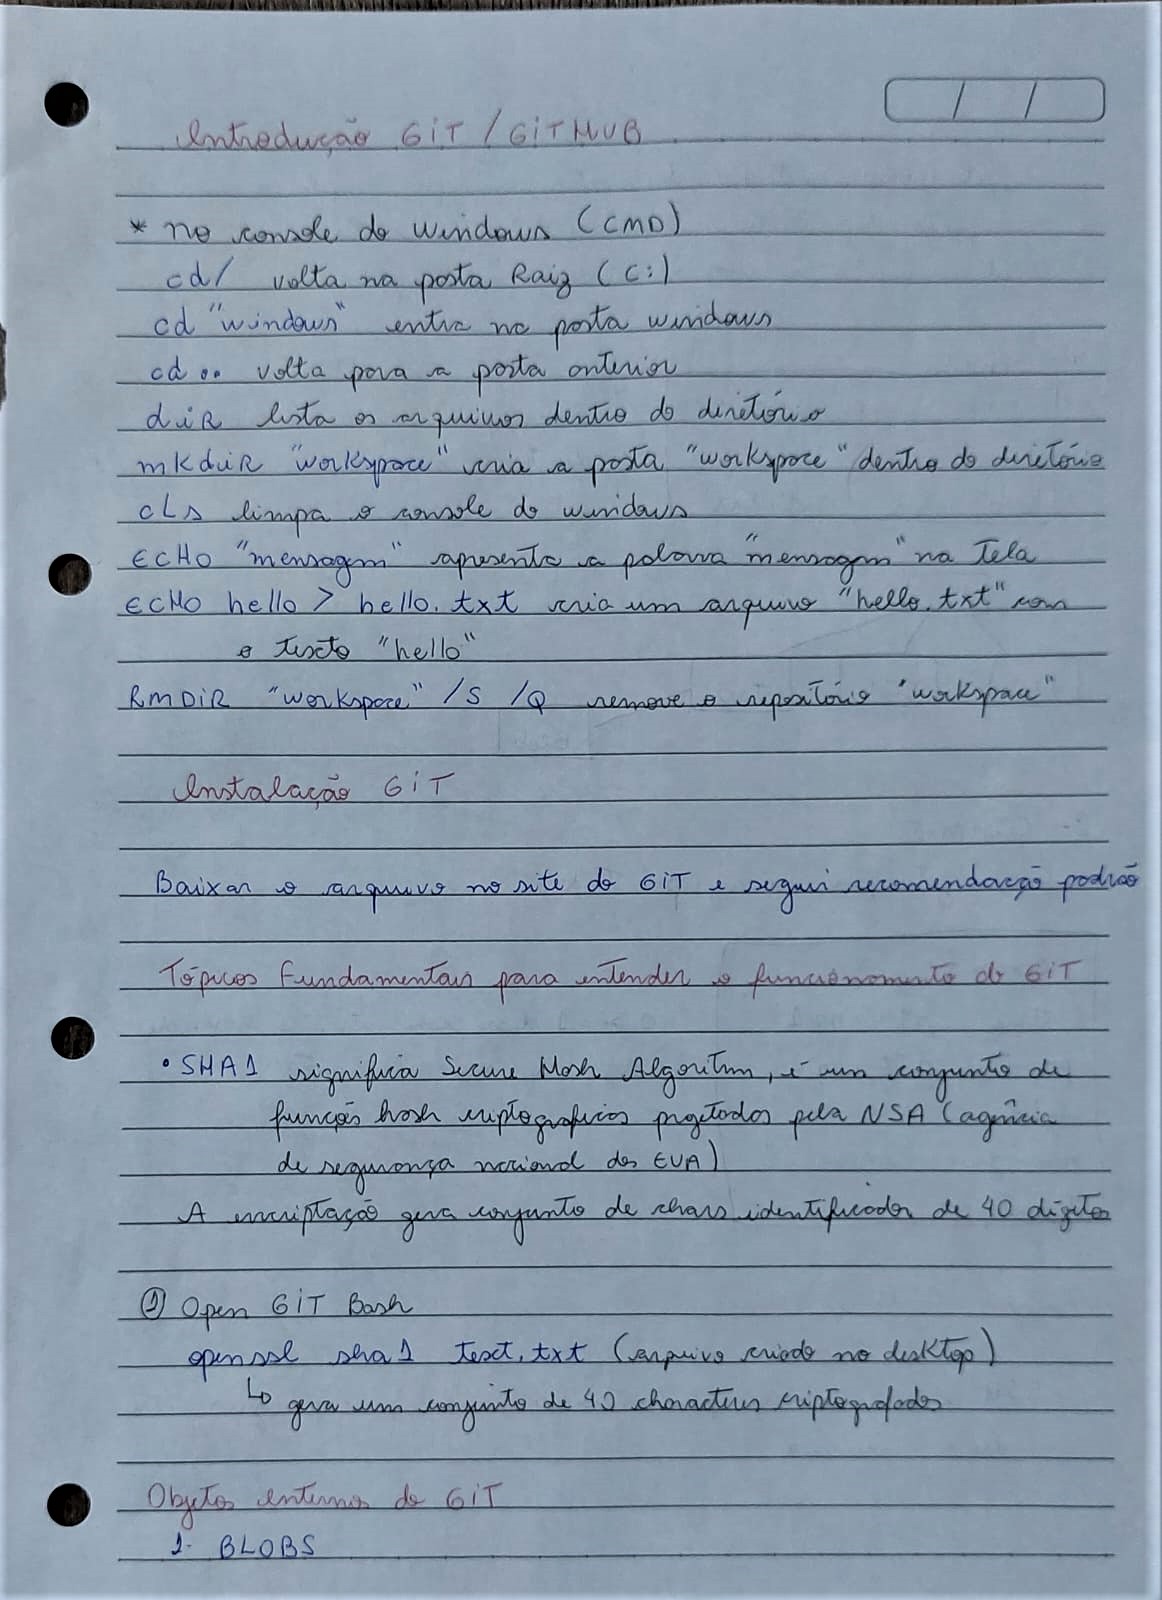 Introdução GiT / GiTHUB
* no console do windows (CMD)
cd/ volta na pasta Raiz (C:)
cd "windows" entra na pasta windows
cd .. volta para a pasta anterior
diR lista os arquivos dentro do diretório
mkdiR "workspace" cria a pasta "workspace" dentro do diretório
cLs limpa o console do windows
ECHO "mensagem" apresenta a palavra "mensagem" na Tela
ECHO hello > hello.txt cria um arquivo "hello.txt" com
o texto "hello"
RMDiR "workspace" /S /Q remove o repositório "workspace"
Instalação GiT
Baixar o arquivo no site do GiT e seguir recomendação padrão
Tópicos Fundamentais para entender o funcionamento do GiT
• SHA1 significa Secure Hash Algorithm, é um conjunto de
funções hash criptograficas projetadas pela NSA (agência
de segurança nacional dos EUA)
A encriptação gera conjunto de chars identificador de 40 dígitos
① Open GiT Bash
openssl sha1 text.txt (arquivo criado no desktop)
↳ gera um conjunto de 40 characters criptografados
Objetos internos do GiT
1. BLOBS